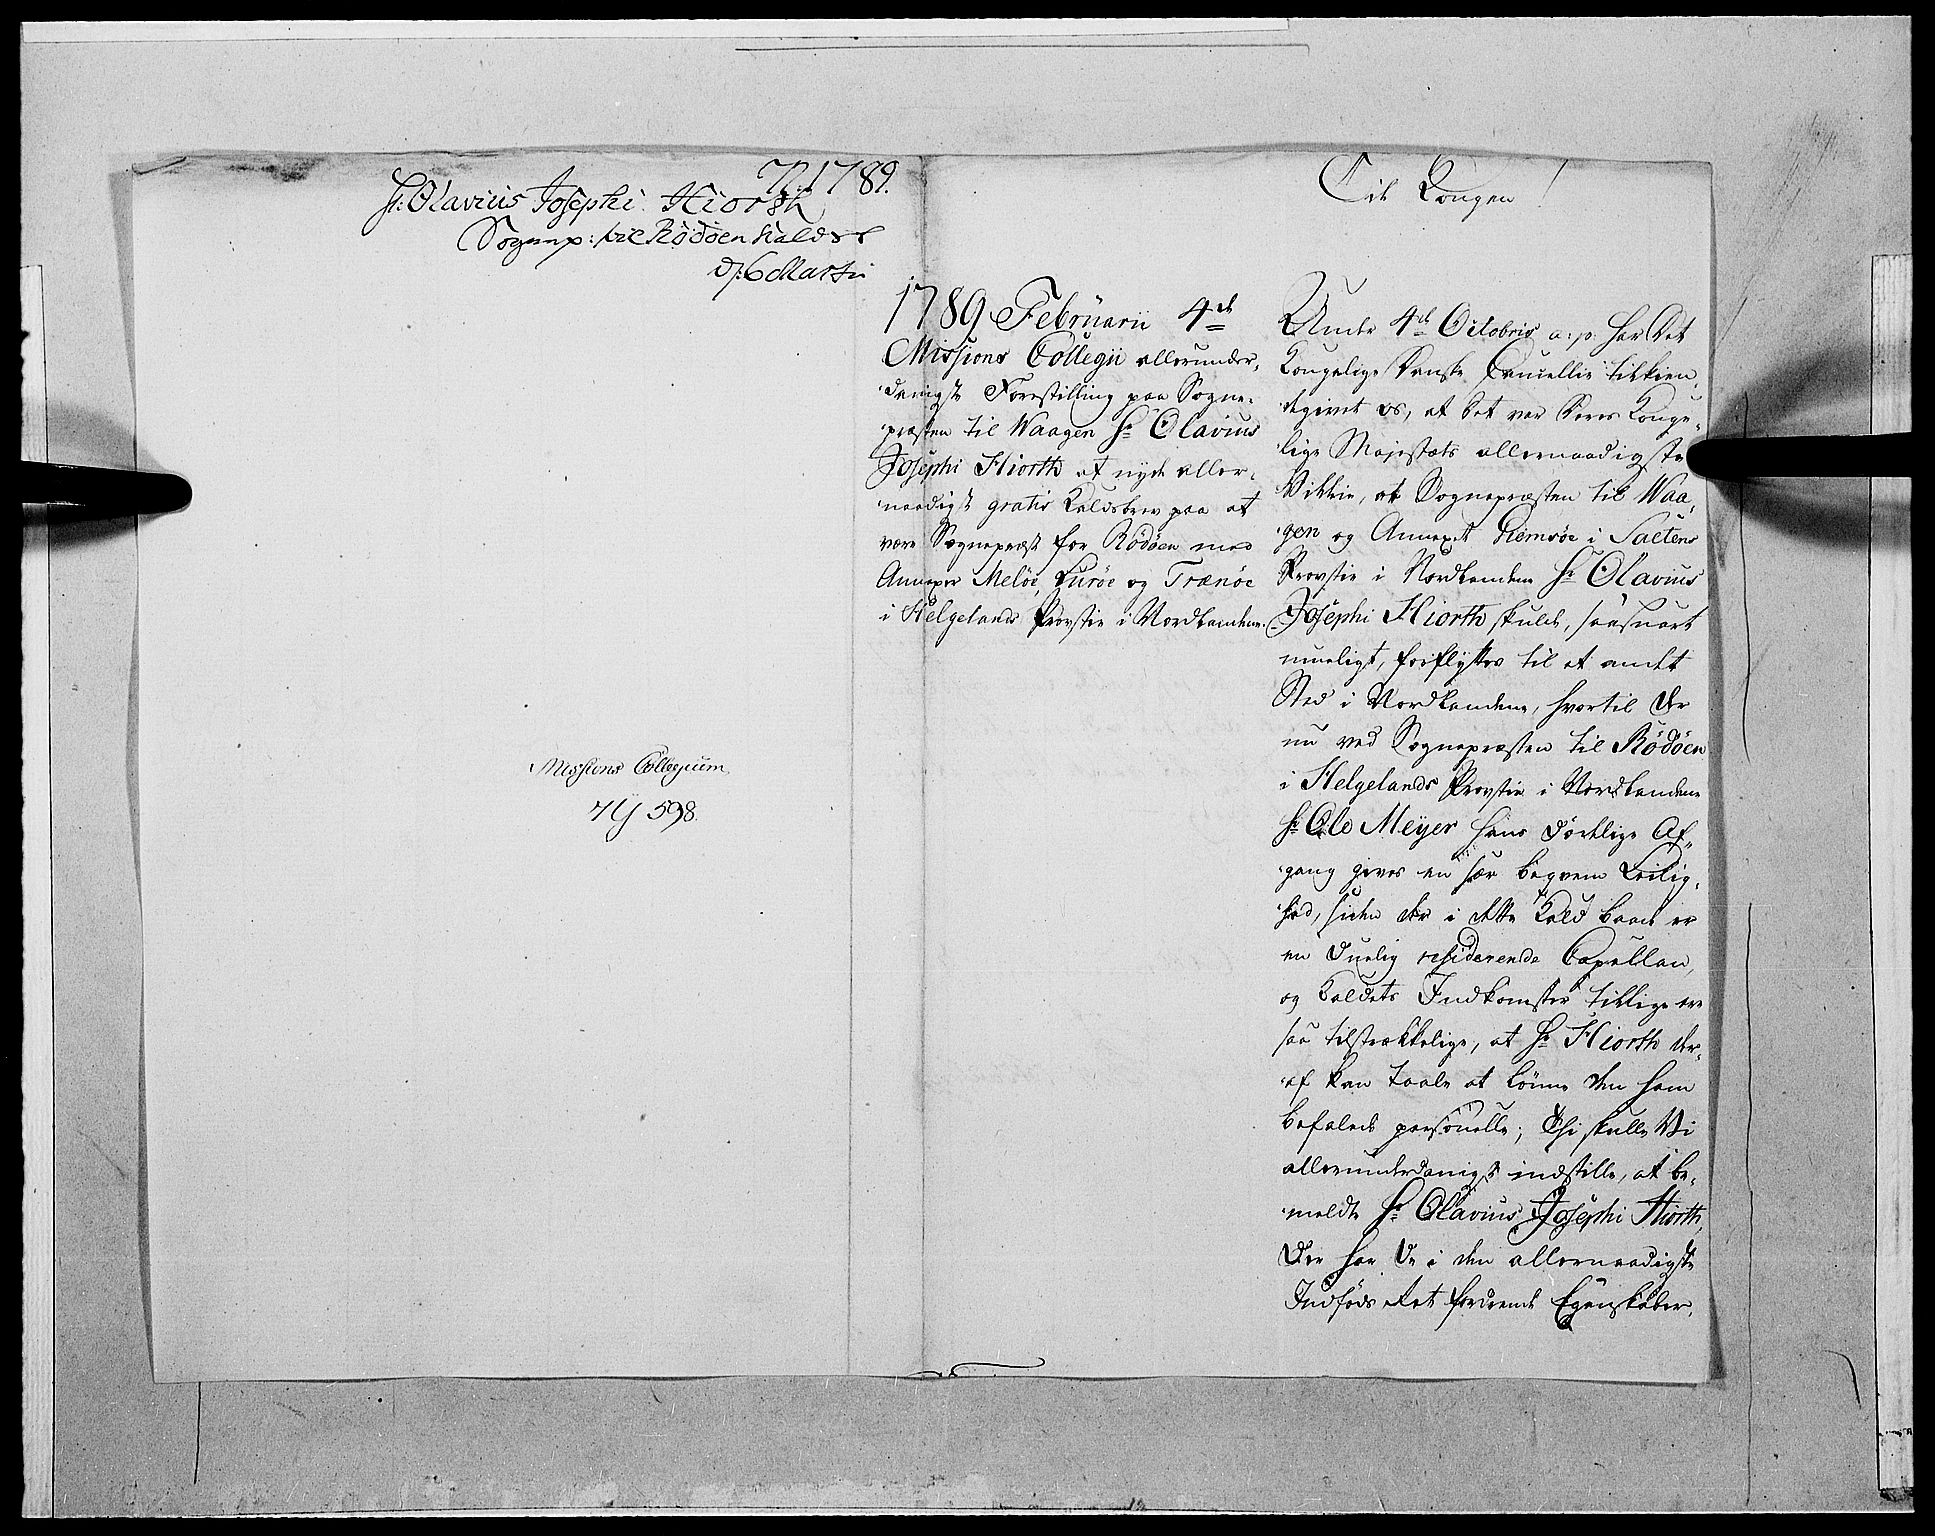 72. 1789.
Hr: Olavius Josephi Hiorth
Sognep: til Rödöen Kald
d: 6 Martii
Missions Collegium
598.
1789 Februarii 4de
Missions Collegii allerunder,
danigste Forestilling paa Sogne,
præsten til Waagen Hr Olavius
Josephi Hiorth at nyde aller,
naadigst gratis Kaldsbrev paa at
være Sognepræst for Rödöen med
Annexer Melöe, Luröe og Trænöe
i Helgelands Provstie i Nordlandene.
Til Kongen!
Under 4de Octobris a: p: har Det
Kongelige Danske Cancellie tilkien,
degivet os, at det var Deres Konge,
lige Majestæts allernaadigste
Villie, at Sognepræsten til Waa,
gen og Annexet Giemsöe i Saltens
Provstie i Nordlandene Hr Olavius
Josephi Hiorth skulde, saasnart
mueligt, forflyttes til et andet
Sted i Nordlandene, hvortil der
nu ved Sognepræsten til Rödöen
i Helgelands Provstie i Nordlandene
Hr Ole Meÿer hans dödelige Af,
gang gives en sær beqvem Leilig,
hed, siden der i dette Kald baade er
en duelig residerende Capellan,
og Kaldets Indkomster tillige ere
saa tilstrækkelige, at Hr Hiorth der,
af kan taale at lönne den ham
befalede personelle; Thi skulle Vi
allerunderdanigst indstille, at be,
meldte Hr Olavius Josephi Hiorth,
der har de i den allernaadigste
Indföds Ret fordrende Egenskaber,